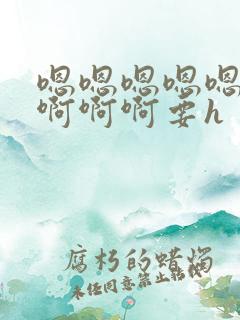 嗯嗯嗯嗯嗯
啊啊啊要h
腐朽的蜡烛
未经同意禁止转载